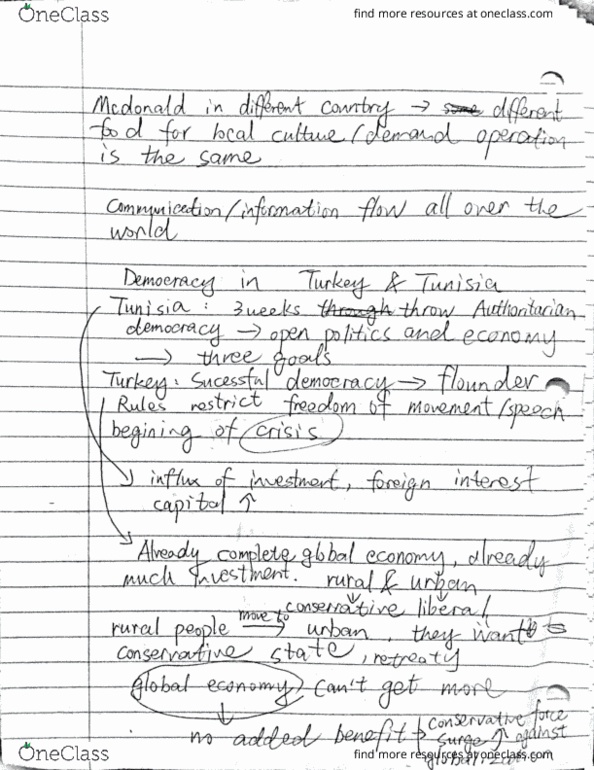 OneClass
find more resources at oneclass.com
Mcdonald in different country → some different
food for local culture/demand operation
is the same
Communication/information flow all over the
world
Democracy in Turkey & Tunisia
Tunisia: 3weeks through throw Authoritarian
democracy → open politics and economy
→ three goals
Turkey: Sucessful democracy → flounder
Rules restrict freedom of movement/speech
begining of crisis
influx of investment, foreign interest
capital ↑
Already complete global economy, already
much investment. rural & urban
conservative liberal
rural people move to → urban, they want
conservative state,
global economy can't get more
↓
no added benefit → conservative force
surge ↑ against
OneClass
find more resources at oneclass.com